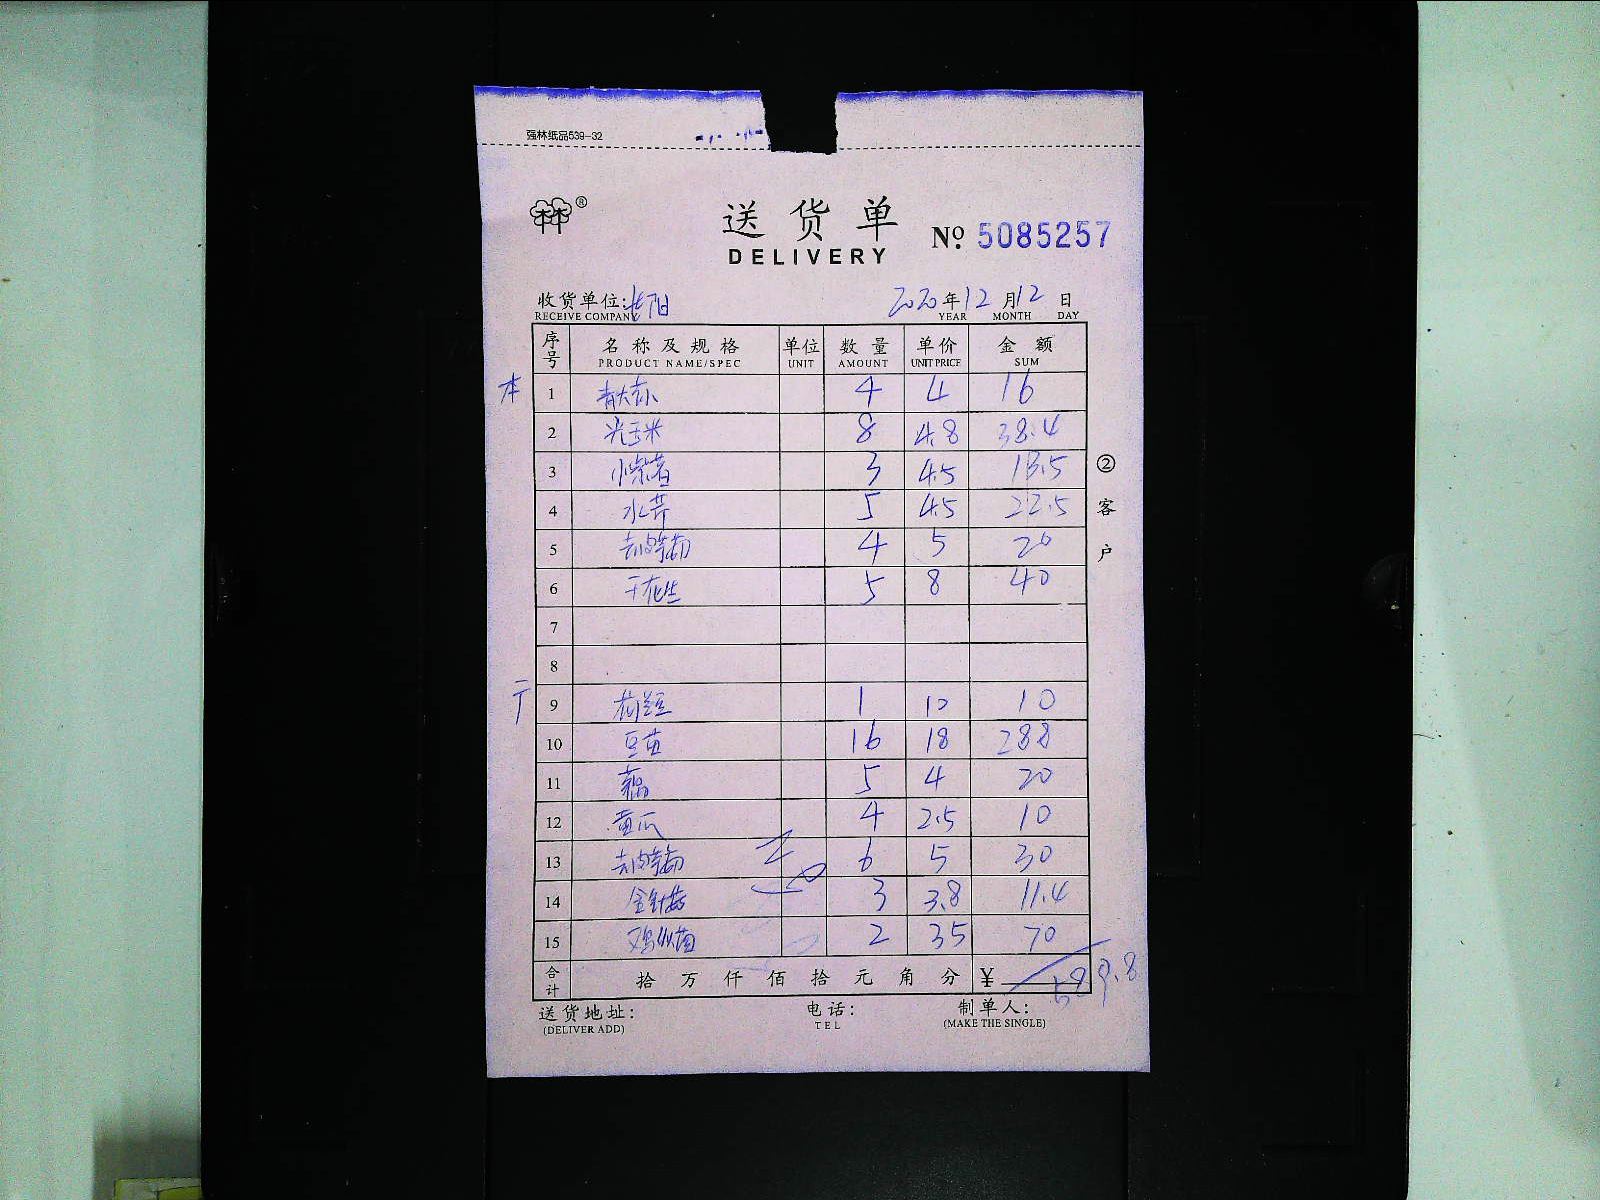 强林纸品539-32
林®
送货单
№ 5085257
DELIVERY
收货单位: 2020年12月12日
RECEIVE COMPANY YEAR MONTH DAY
序号 名称及规格 单位 数量 单价 金额
PRODUCT NAME/SPEC UNIT AMOUNT UNIT PRICE SUM
本 1 4 4 16
2 光玉米 8 4.8 38.4
3 小紫薯 3 4.5 13.5
4 水芹 5 4.5 22.5
5 去皮莴笋 4 5 20
6 干花生 5 8 40
7
8
9 荷兰豆 1 10 10
10 豆苗 16 18 288
11 藕 5 4 20
12 黄瓜 4 2.5 10
13 去皮莴笋 6 5 30
14 金针菇 3 3.8 11.4
15 鸡纵菌 2 35 70
合计 拾万仟佰拾元角分 ¥ 589.8
送货地址: 电话: 制单人:
(DELIVER ADD) TEL (MAKE THE SINGLE)
②客户